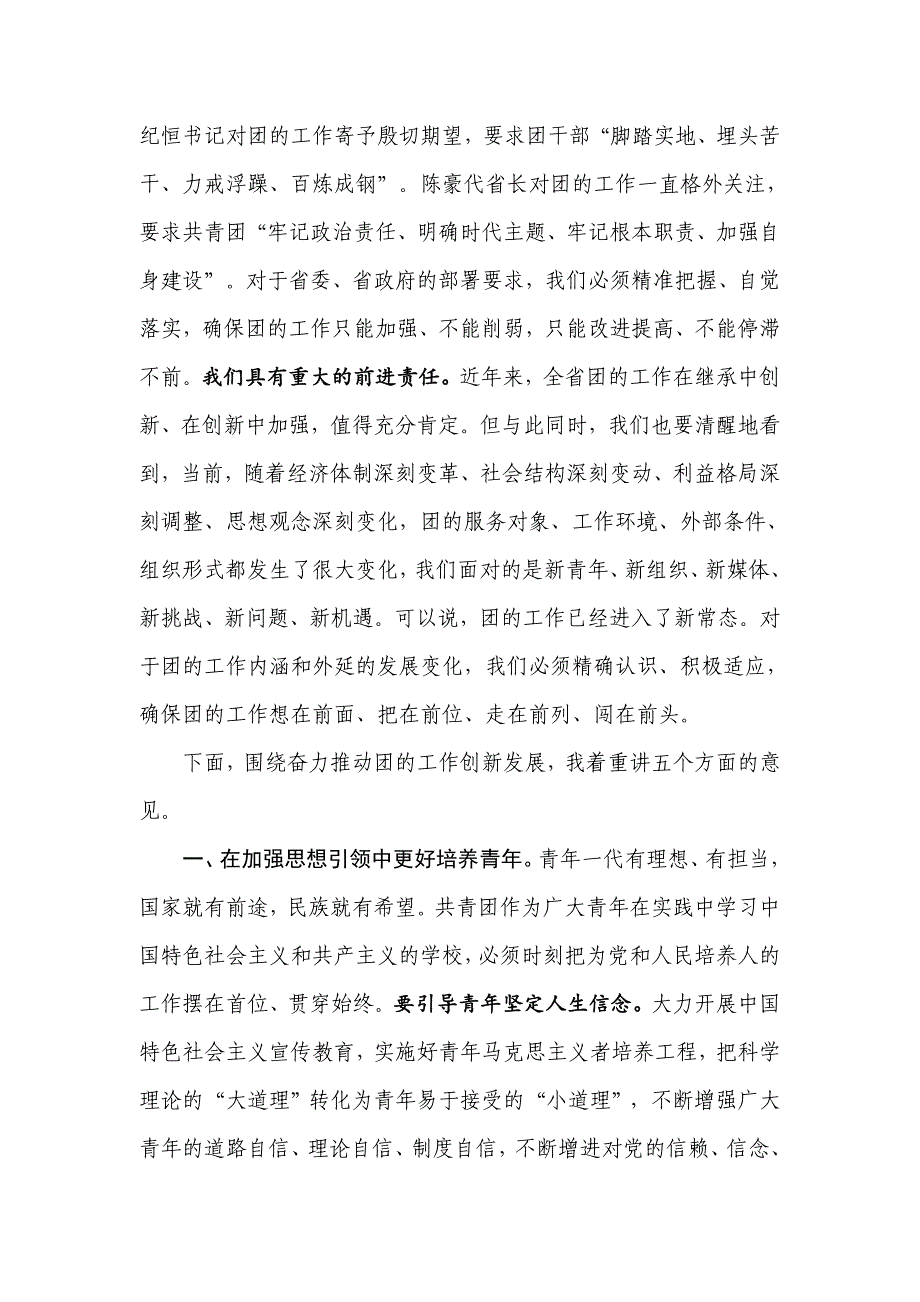 纪恒书记对团的工作寄予殷切期望，要求团干部“脚踏实地、埋头苦
干、力戒浮躁、百炼成钢”。陈豪代省长对团的工作一直格外关注，
要求共青团“牢记政治责任、明确时代主题、牢记根本职责、加强自
身建设”。对于省委、省政府的部署要求，我们必须精准把握、自觉
落实，确保团的工作只能加强、不能削弱，只能改进提高、不能停滞
不前。我们具有重大的前进责任。近年来，全省团的工作在继承中创
新、在创新中加强，值得充分肯定。但与此同时，我们也要清醒地看
到，当前，随着经济体制深刻变革、社会结构深刻变动、利益格局深
刻调整、思想观念深刻变化，团的服务对象、工作环境、外部条件、
组织形式都发生了很大变化，我们面对的是新青年、新组织、新媒体、
新挑战、新问题、新机遇。可以说，团的工作已经进入了新常态。对
于团的工作内涵和外延的发展变化，我们必须精确认识、积极适应，
确保团的工作想在前面、把在前位、走在前列、闯在前头。
下面，围绕奋力推动团的工作创新发展，我着重讲五个方面的意
见。
一、在加强思想引领中更好培养青年。青年一代有理想、有担当，
国家就有前途，民族就有希望。共青团作为广大青年在实践中学习中
国特色社会主义和共产主义的学校，必须时刻把为党和人民培养人的
工作摆在首位、贯穿始终。要引导青年坚定人生信念。大力开展中国
特色社会主义宣传教育，实施好青年马克思主义者培养工程，把科学
理论的“大道理”转化为青年易于接受的“小道理”，不断增强广大
青年的道路自信、理论自信、制度自信，不断增进对党的信赖、信念、